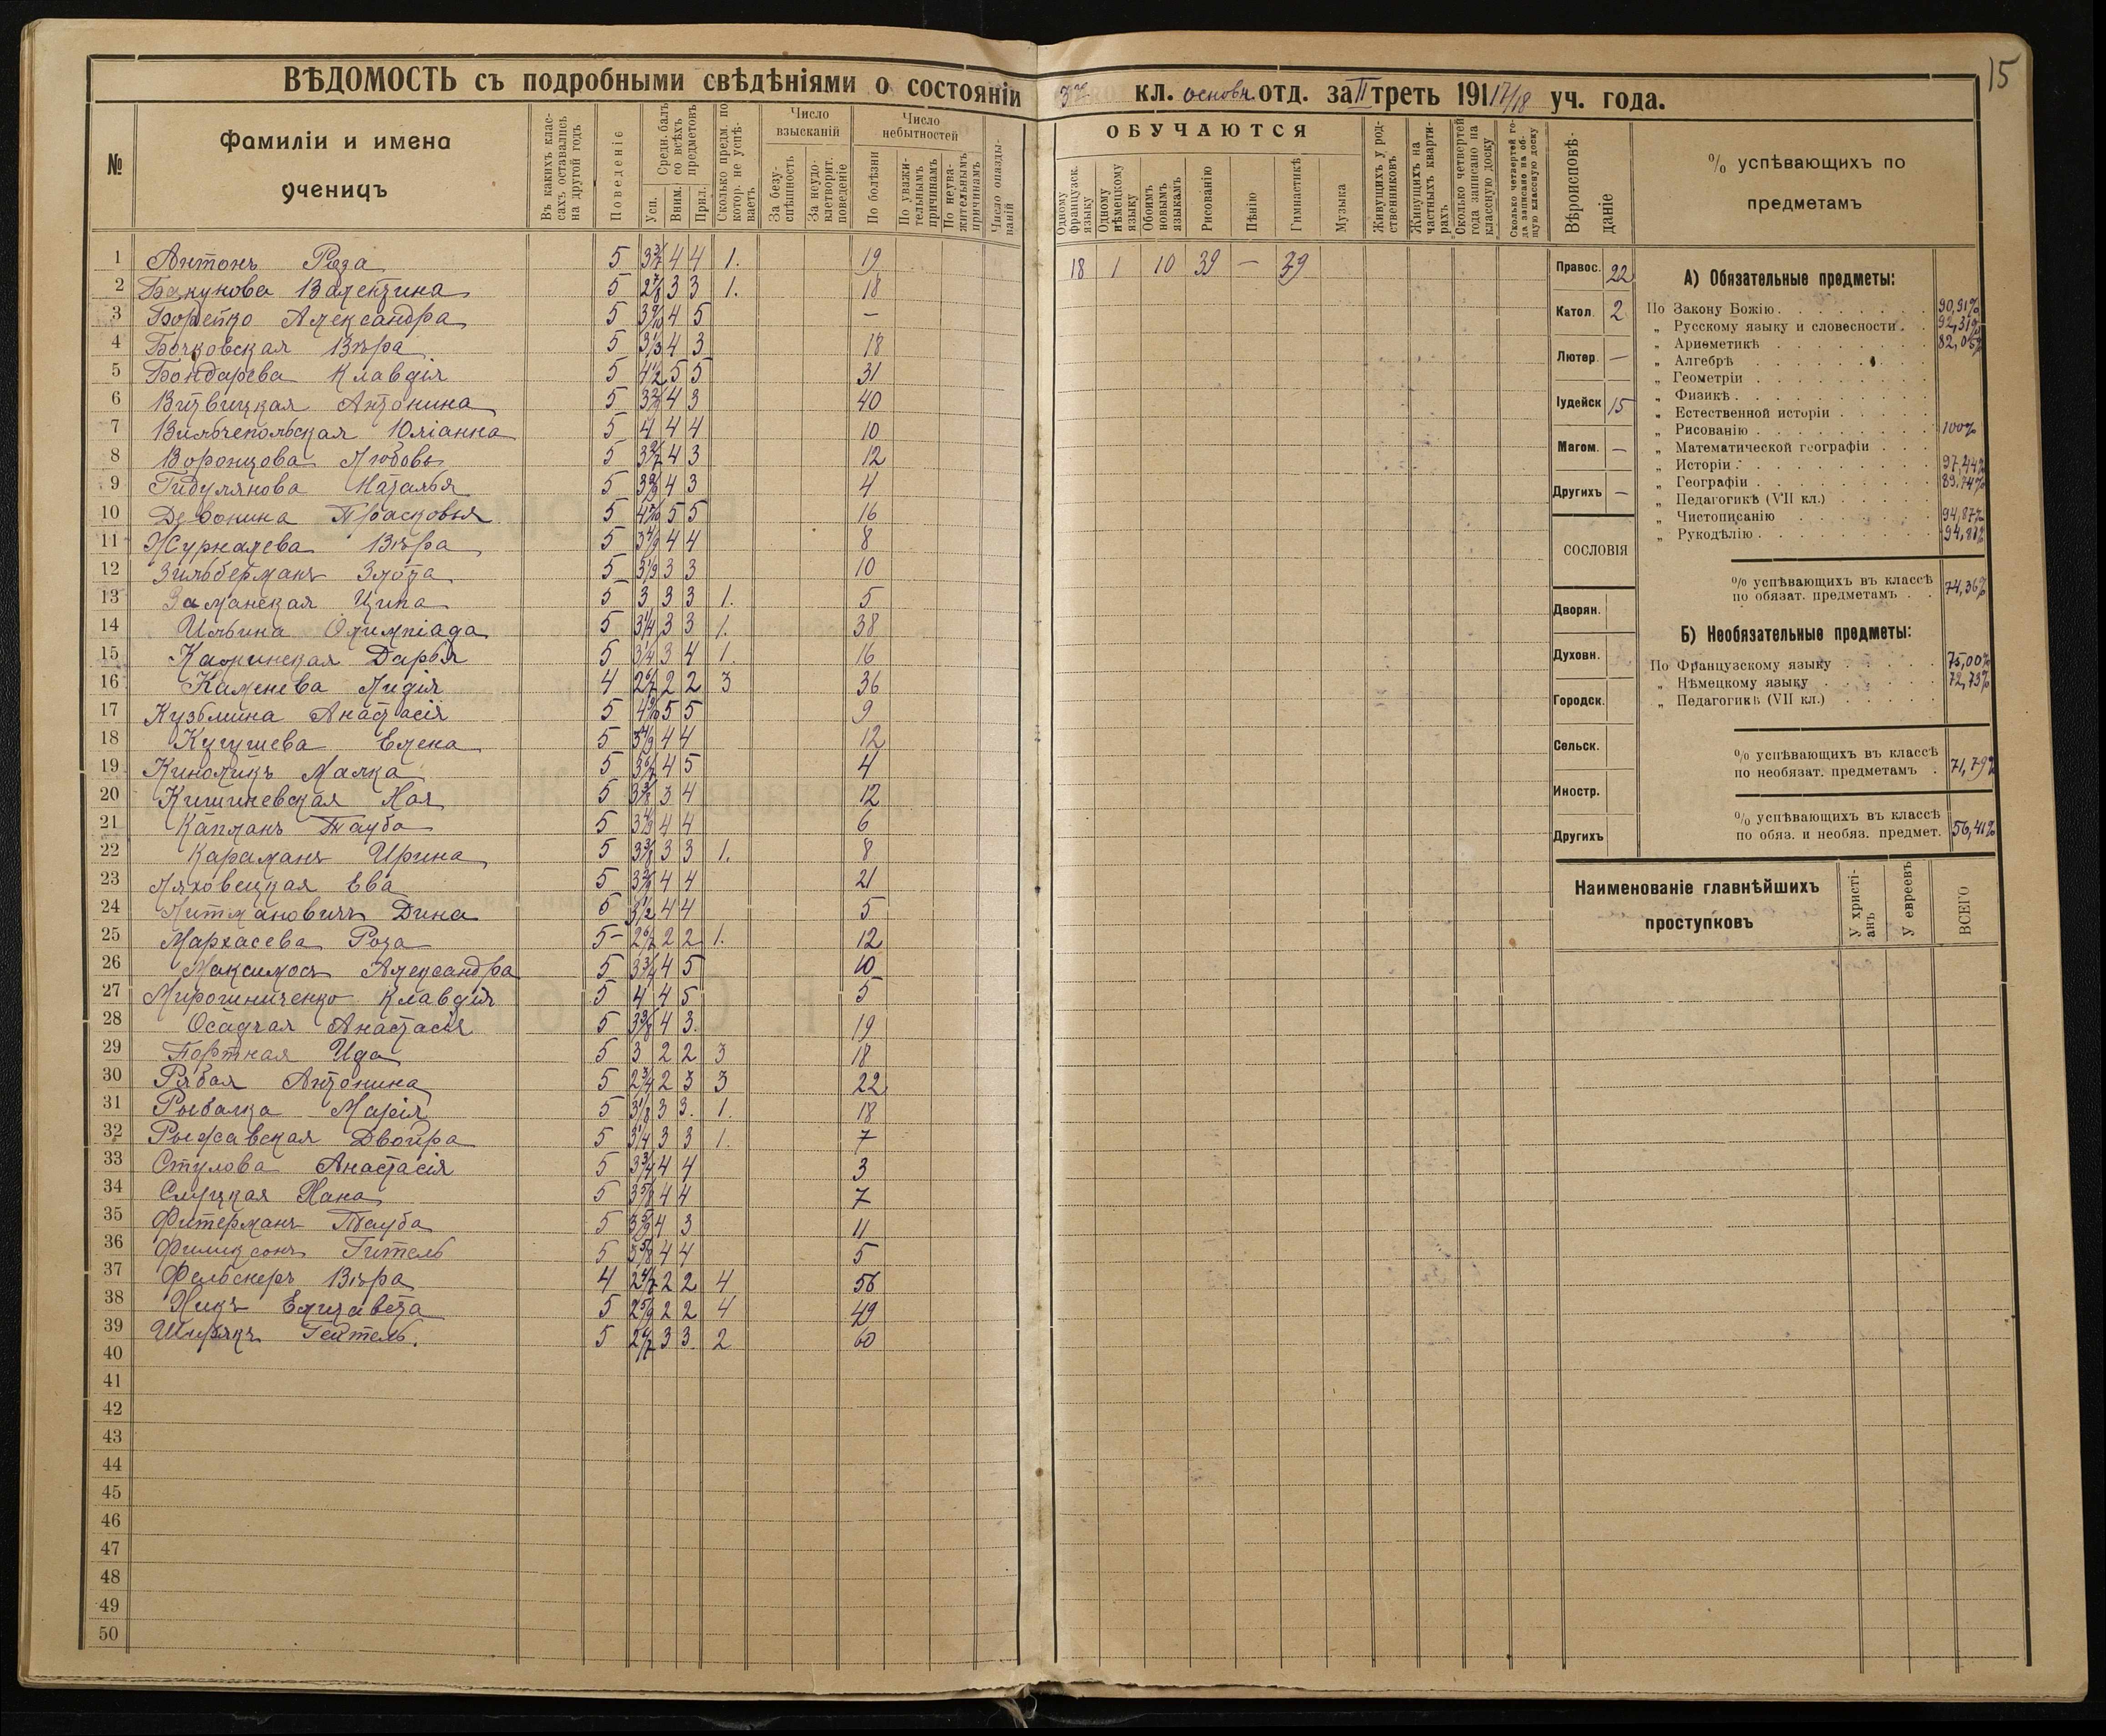 15
ВѢДОМОСТЬ съ подробными свѣдѣніями о состояніи 3го кл. основн. отд. за II треть 191 17/18 уч. года.
№
Фамиліи и имена ученицъ
Въ какихъ классахъ оставались на другой годъ
Поведеніе
Средн. балъ со всѣхъ предметовъ
Усп.
Вним.
Прил.
Сколько предм. по котор. не успѣваетъ
Число взысканій
За безуспѣшность
За неудовлетворит. поведеніе
Число небытностей
По болѣзни
По уважительнымъ причинамъ
По неуважительнымъ причинамъ
Число опаздываній
ОБУЧАЮТСЯ
Одному французск. языку
Одному нѣмецкому языку
Обоимъ новымъ языкамъ
Рисованію
Пѣнію
Гимнастикѣ
Музыка
Живущихъ у родственниковъ
Живущихъ на частныхъ квартирахъ
Сколько четвертей года записано на классную доску
Вѣроисповѣданіе
% успѣвающихъ по предметамъ
1 Антонъ Роза 5 4 4 1. 19
2 Бакунова Валентина 5 2 7/8 3 3 1. 18
3 Борейко Александра 5 4 5 —
4 Бочковская Вѣра 5 3 1/3 4 3 18
5 Бондарева Клавдія 5 4 1/2 5 5 31
6 Витвицкая Антонина 5 4 3 40
7 Вильчепольская Юліанна 5 4 4 4 10
8 Воронцова Любовь 5 4 3 12
9 Гидулянова Наталья 5 4 3 4
10 Девонина Прасковья 5 5 5 16
11 Журналева Вѣра 5 4 4 8
12 Зильберманъ Злота 5 3 1/9 3 3 10
13 Заманская Ципа 5 3 3 3 1. 5
14 Ильина Олимпіада 5 3 1/4 3 3 1. 38
15 Каминская Дарья 5 3 1/4 3 4 1. 16
16 Каменева Лидія 4 2 2 3 36
17 Кузьмина Анастасія 5 5 5 9
18 Кугушева Елена 5 4 4 12
19 Киноликъ Малка 5 4 5 4
20 Кишиневская Хая 5 3 4 12
21 Капланъ Тауба 5 4 4 6
22 Караманъ Ирина 5 3 3 1. 8
23 Ляховецкая Ева 5 4 4 21
24 Литмановичъ Дина 5 3 1/2 4 4 5
25 Мархасева Роза 5- 2 2 1. 12
26 Максимосъ Александра 5 3 3/4 4 5 10
27 Мирошниченко Клавдія 5 4 4 5 5
28 Осадчая Анастасія 5 4 3. 19
29 Портная Ида 5 3 2 2 3 18
30 Рябая Антонина 5 2 3/4 2 3 3 22
31 Рыбалка Марія 5 3 1/8 3 3. 1. 18
32 Рыжавская Двойра 5 3 1/4 3 3 1. 7
33 Стулова Анастасія 5 3 3/4 4 4 3
34 Слуцкая Хана 5 3 5/8 4 4 7
35 Фитерманъ Тауба 5 4 3 11
36 Филиксонъ Гитель 5 4 4 5
37 Фельснеръ Вѣра 4 2 4/7 2 2 4 56
38 Хикъ Елизавета 5 2 5/9 2 2 4 49
39 Ширякъ Гейтель. 5 3 3. 2 60
40
41
42
43
44
45
46
47
48
49
50
18 1 10 39 — 39
Правос. 22
Катол. 2
Лютер. —
Іудейск 15
Магом. —
Другихъ —
СОСЛОВІЯ
Дворян.
Духовн.
Городск.
Сельск.
Иностр.
Другихъ
А) Обязательные предметы:
По Закону Божію 90,91%
„ Русскому языку и словесности 92,31%
„ Ариѳметикѣ 82,05%
„ Алгебрѣ
„ Геометріи
„ Физикѣ
„ Естественной исторіи
„ Рисованію 100%
„ Математической географіи
„ Исторіи 97,44%
„ Географіи 89,74%
„ Педагогикѣ (VII кл.)
„ Чистописанію 94,87%
„ Рукодѣлію 94,87%
% успѣвающихъ въ классѣ
по обязат. предметамъ 74,36%
Б) Необязательные предметы:
По Французскому языку 75,00%
„ Нѣмецкому языку 72,73%
„ Педагогикѣ (VII кл.)
% успѣвающихъ въ классѣ
по необязат. предметамъ 71,79%
% успѣвающихъ въ классѣ
по обяз. и необяз. предмет. 56,41%
Наименованіе главнѣйшихъ
проступковъ
У христіанъ
У евреевъ
ВСЕГО